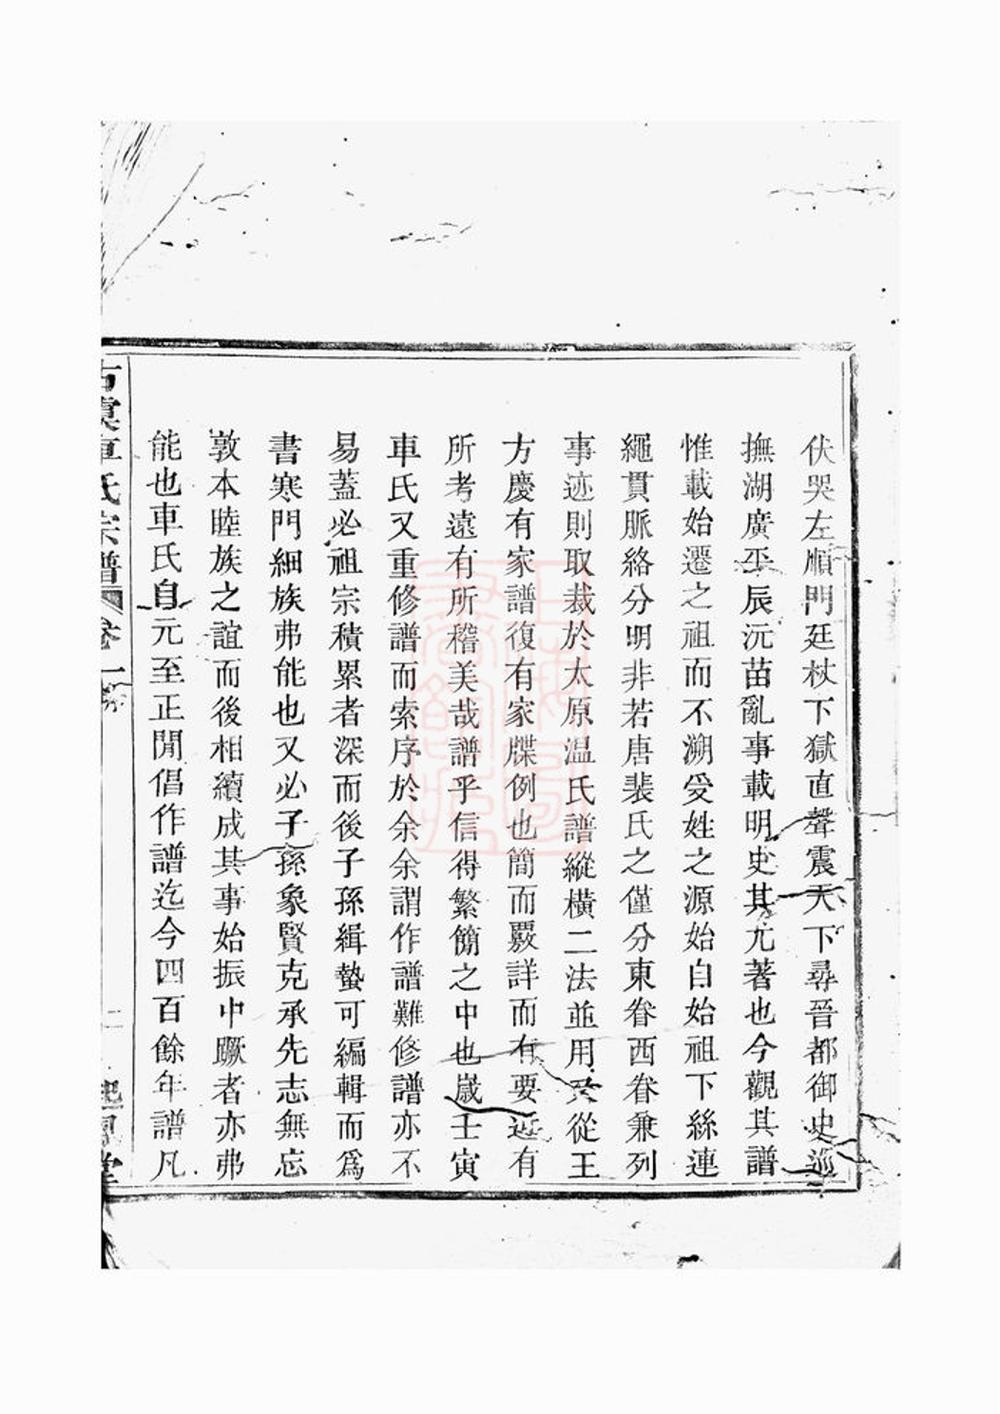 伏哭左順門廷杖下獄直聲震天下尋晉都御史巡
撫湖廣平辰沅苗亂事載明史其尤著也今觀其譜
惟載始遷之祖而不溯受姓之源始自始祖下絲連
繩貫脈絡分明非若唐裴氏之僅分東眷西眷兼列
事迹則取裁於太原温氏譜縱橫二法並用又從王
方慶有家譜復有家牒例也簡而覈詳而有要近有
所考遠有所稽美哉譜乎信得繁簡之中也嵗壬寅
車氏又重修譜而索序於余余謂作譜難修譜亦不
易蓋必祖宗積累者深而後子孫緝蟄可編輯而爲
書寒門細族弗能也又必子孫象賢克承先志無忘
敦本睦族之誼而後相續成其事始振中蹶者亦弗
能也車氏自元至正閒倡作譜迄今四百餘年譜凡
古虞車氏宗譜 卷一 二 堂